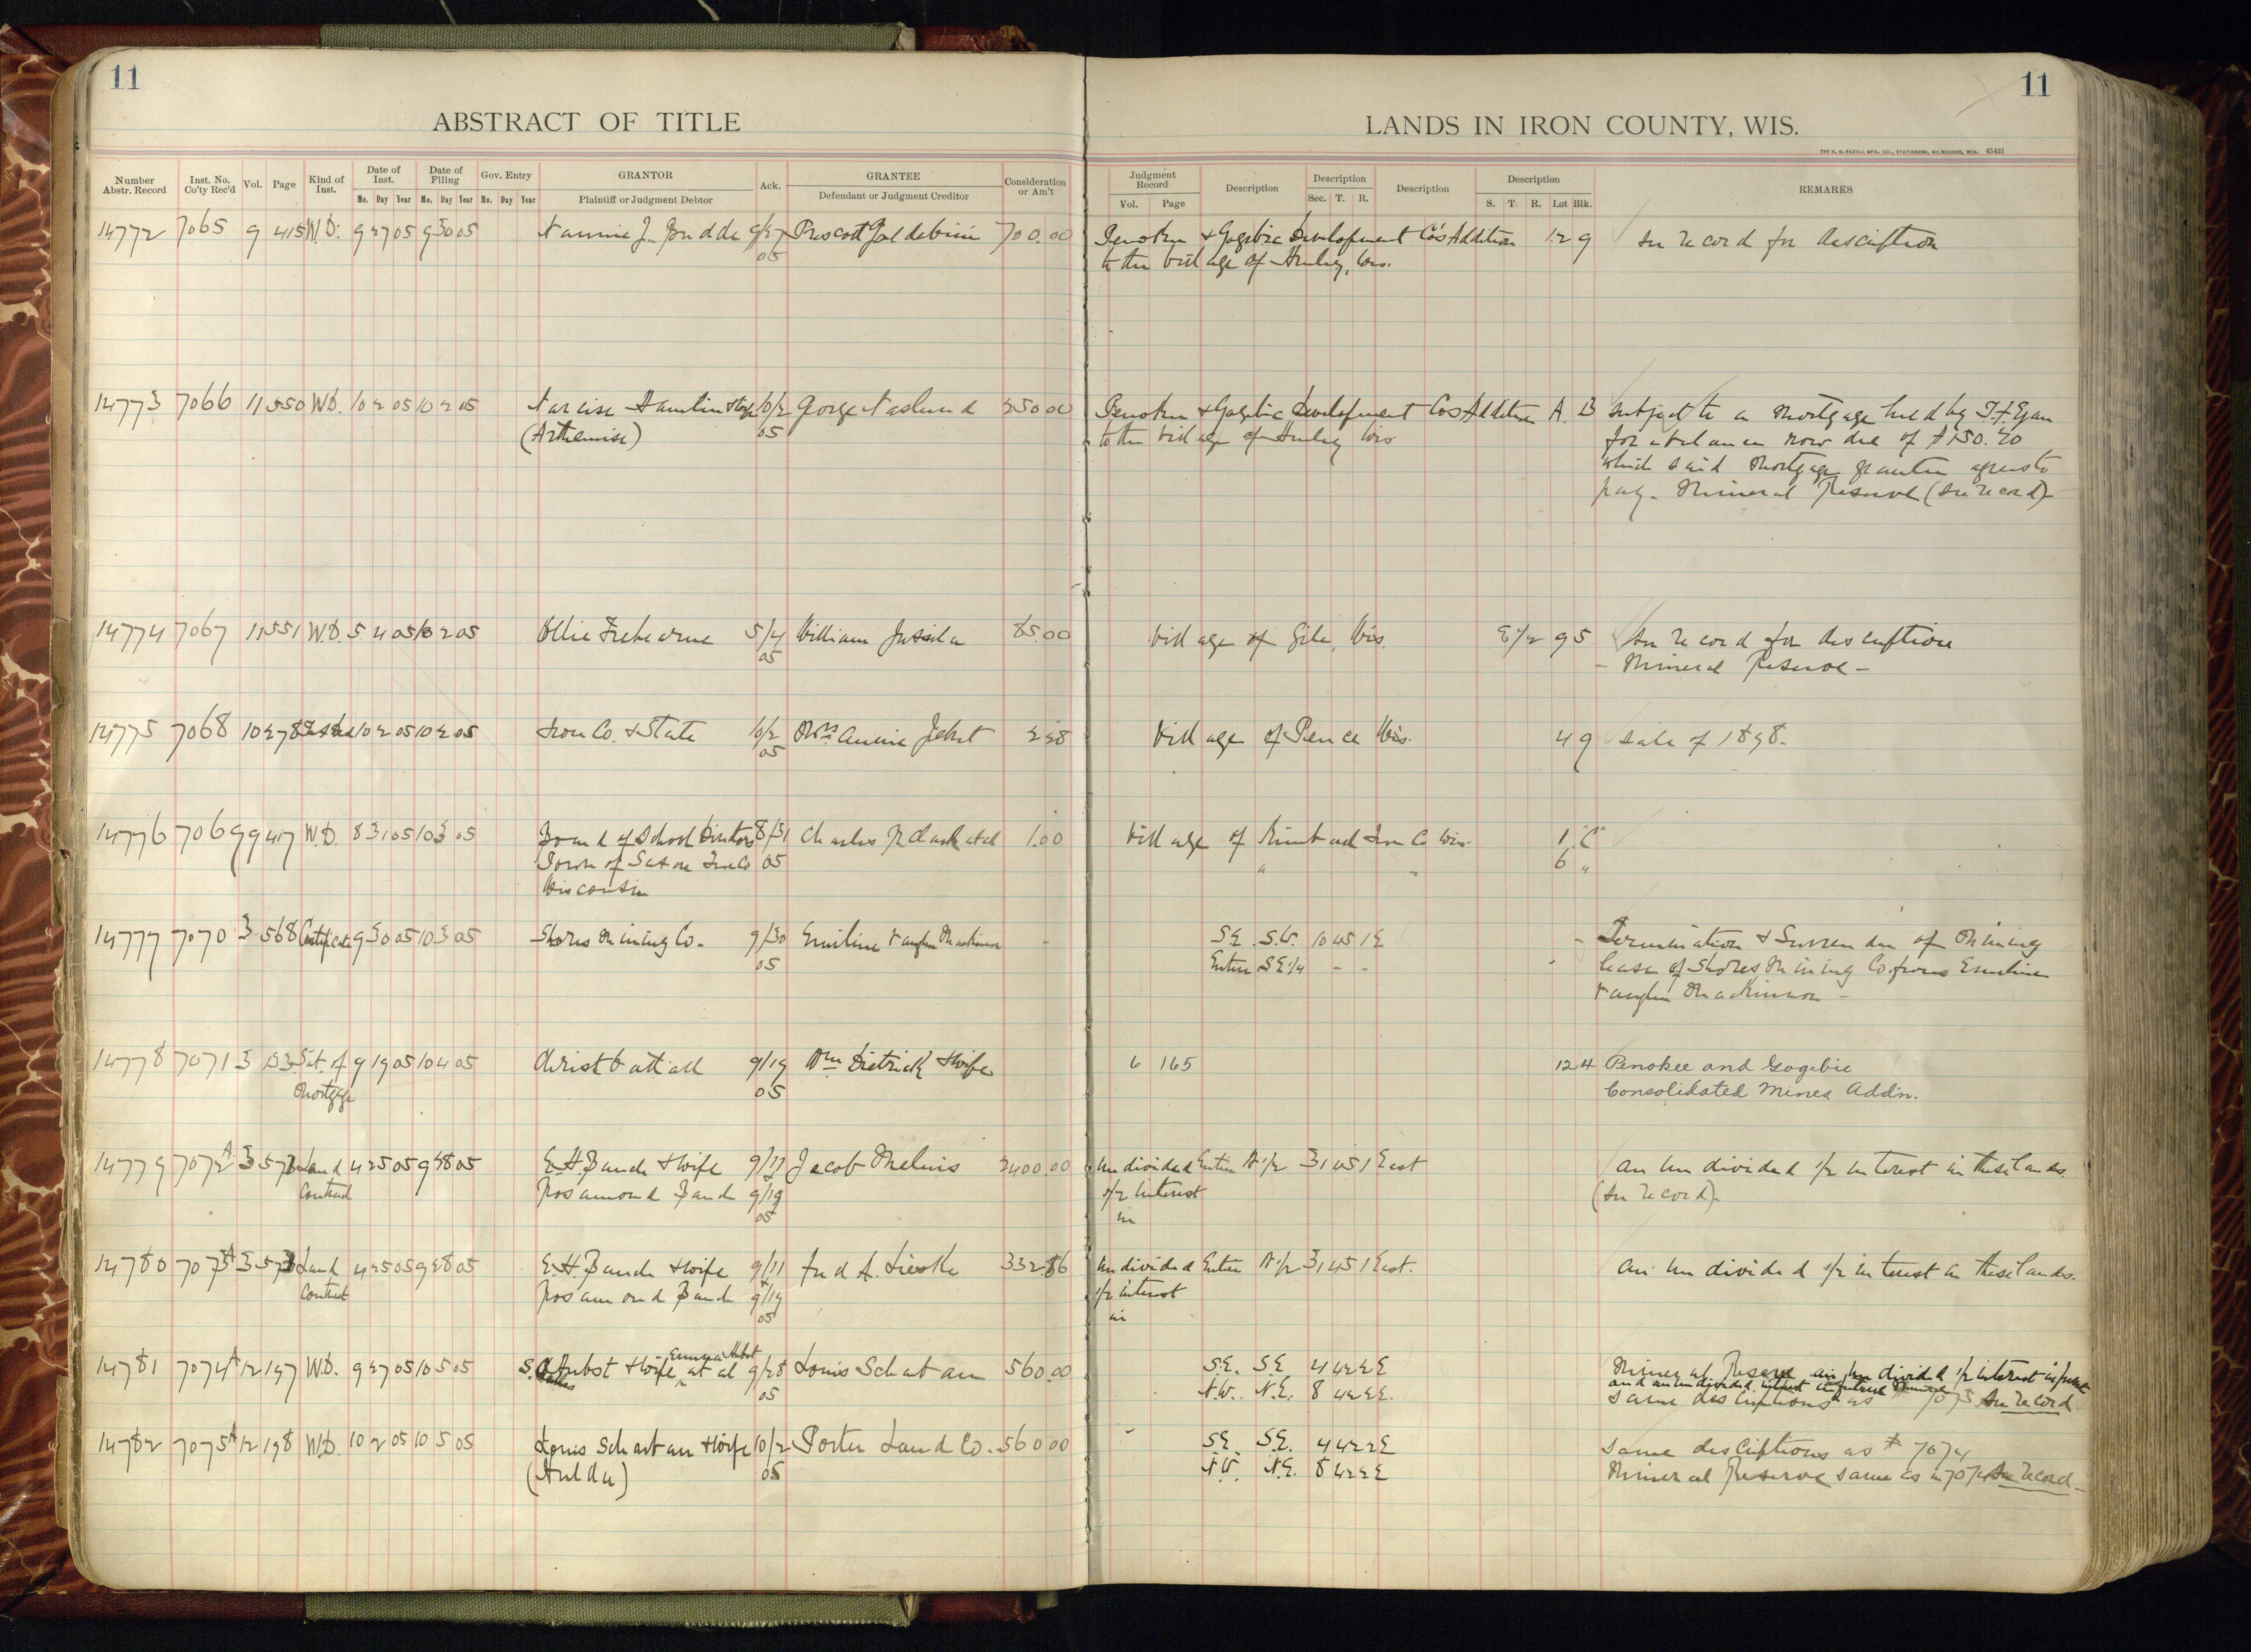 11
ABSTRACT OF TITLE
Number Abstr. Record Inst. No. Co'ty Rec'd Vol. Page Kind of Inst. Date of Inst. Mo. Day Year Date of Filing Mo. Day Year Gov. Entry Mo. Day Year GRANTOR Plaintiff or Judgment Debtor Ack. GRANTEE Defendant or Judgment Creditor Consideration or Am't
14772 7065 9 415 W.D. 9 27 05 9 30 05 Nannie J. 9/27 Prescott 700.00
05
14773 7066 11 550 W.D. 10 2 05 10 2 05 Narcise Hamlin & wife 10/2 George Naslund 250 00
(Arthemise) 05
14774 7067 11 551 W.D. 5 4 05 10 2 05 Ollie 5/4 William Jussila 85.00
05
14775 7068 10 278 10 2 05 10 2 05 Iron Co. & State 10/2 Mrs Annie 2 28
05
14776 7069 9 417 W.D. 8 31 05 10 3 05 Board of School Directors 8/31 Charles 1.00
Town of Saxon Iron Co 05
Wisconsin
14777 7070 3 568 Certificate 9 30 05 10 3 05 Shores Mining Co. 9/30 Emiline Vaughn Mackinnon -
05
14778 7071 3 133 Sat. of 9 19 05 10 4 05 Christ 9/19 Wm Dietrick & wife
Mortgage 05
14779 7072 A 3 572 Land 4 25 05 9 28 05 E.H. Bande & wife 9/11 Jacob 2400.00
Contract Rosamond Bande 9/19
05
14780 7073 A 3 573 Land 4 25 05 9 28 05 E.H. Bande & wife 9/11 Fred A. Lieske 332.86
Contract Rosamond Bande 9/19
05
14781 7074 A 12 197 W.D. 9 27 05 10 5 05 & wife Emma et al 9/28 Louis Schatan 560.00
05
14782 7075 A 12 198 W.D. 10 2 05 10 5 05 Louis Schatan & wife 10/2 Porter Land Co. 560 00
(Hulda) 05
11
LANDS IN IRON COUNTY, WIS.
THE H. G. RAZALL MFG. CO., STATIONERS, MILWAUKEE, WIS. 45431
Judgment Record Vol. Page Description Description Sec. T. R. Description Description S. T. R. Lot Blk. REMARKS
Penokee & Gogebic Development Co's Addition 12 9 See record for description
to the village of Hurley, Wis.
Penokee & Gogebic Development Co's Addition A. B Subject to a mortgage held by T.F. Egan
to the village of Hurley Wis for a balance now due of $150.70
which said mortgage grantee agrees to
pay. Mineral Reserve (See record)
Village of Gile, Wis. E 1/2 9 5 See record for description
- Mineral Reserve -
Village of Pence Wis. 4 9 Sale of 1898.
Village of Kimball Iron Co Wis. 1 "C"
" " 6 "
S.E. S.W. 10 45 1 E - Termination & Surrender of Mining
Entire S E 1/4 - - Lease of Shores Mining Co from Emeline
Vaughn Mackinnon -
6 165 12 4 Penokee and Gogebic
Consolidated Mines Addn.
Undivided Entire N 1/2 31 45 1 East An undivided 1/2 interest in these lands.
1/2 interest (See record).
in
Undivided Entire N 1/2 31 45 1 East. An undivided 1/2 interest in these lands.
1/2 interest
in
S.E. S.E 4 42 2 E Mineral Reserve an undivided 1/2 interest in
and an undivided interest
N.W. N.E. 8 42 2 E. same descriptions as 7075 See record
S.E. S.E. 4 42 2 E same descriptions as # 7074
N.W. N.E. 8 42 2 E Mineral Reserve same as in 7074 See record